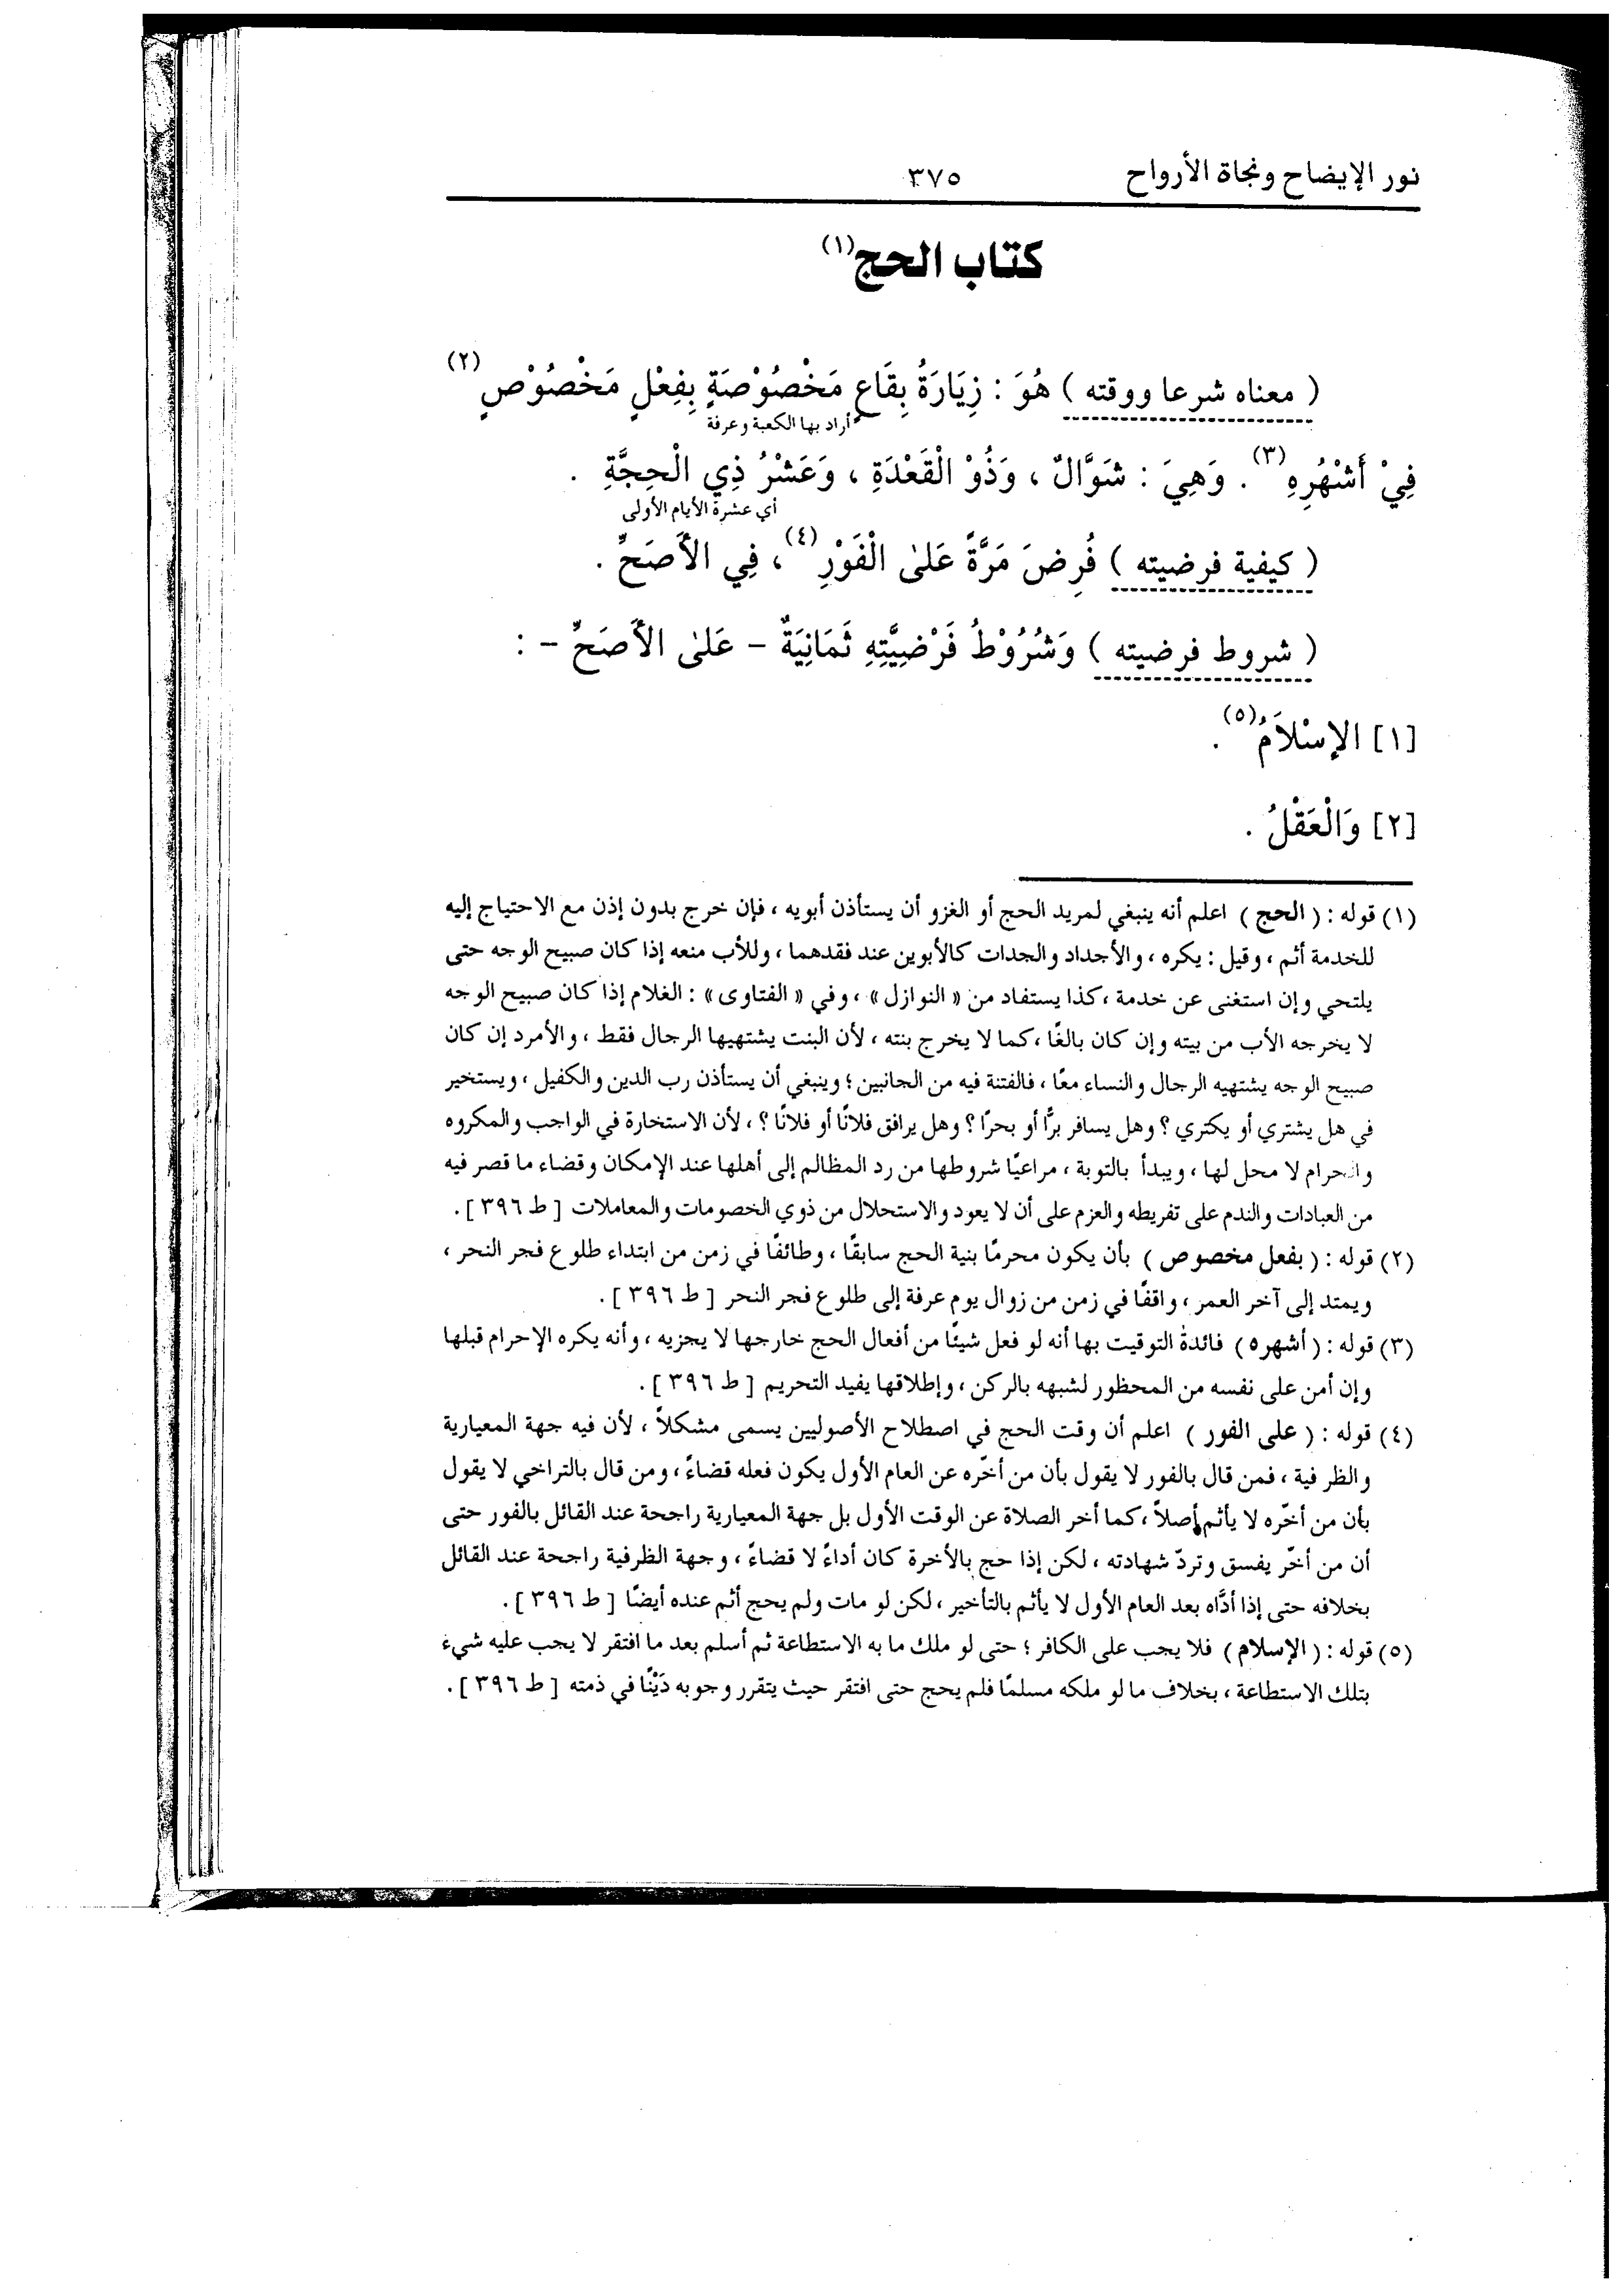 نور الإيضاح ونجاة الأرواح ٣٧٥
كتاب الحج(١)
( معناه شرعا ووقته ) هُوَ : زِيَارَةُ بِقَاعٍ مَخْصُوْصَةٍ بِفِعْلٍ مَخْصُوْصٍ(٢)
أراد بها الكعبة وعرفة
فِيْ أَشْهُرِهِ(٣) . وَهِيَ : شَوَّالٌ ، وَذُوْ الْقَعْدَةِ ، وَعَشْرُ ذِي الْحِجَّةِ .
أي عشرة الأيام الأولى
( كيفية فرضيته ) فُرِضَ مَرَّةً عَلىٰ الْفَوْرِ(٤) ، فِي الأَصَحِّ .
( شروط فرضيته ) وَشُرُوْطُ فَرْضِيَّتِهِ ثَمَانِيَةٌ – عَلىٰ الأَصَحِّ – :
[١] الإِسْلاَمُ(٥) .
[٢] وَالْعَقْلُ .
(١) قوله : ( الحج ) اعلم أنه ينبغي لمريد الحج أو الغزو أن يستأذن أبويه ، فإن خرج بدون إذن مع الاحتياج إليه
للخدمة أثم ، وقيل : يكره ، والأجداد والجدات كالأبوين عند فقدهما ، وللأب منعه إذا كان صبيح الوجه حتى
يلتحي وإن استغنى عن خدمة ، كذا يستفاد من « النوازل » ، وفي « الفتاوى » : الغلام إذا كان صبيح الوجه
لا يخرجه الأب من بيته وإن كان بالغًا ، كما لا يخرج بنته ، لأن البنت يشتهيها الرجال فقط ، والأمرد إن كان
صبيح الوجه يشتهيه الرجال والنساء معًا ، فالفتنة فيه من الجانبين ؛ وينبغي أن يستأذن رب الدين والكفيل ، ويستخير
في هل يشتري أو يكتري ؟ وهل يسافر برًّا أو بحرًا ؟ وهل يرافق فلانًا أو فلانًا ؟ ، لأن الاستخارة في الواجب والمكروه
والحرام لا محل لها ، ويبدأ بالتوبة ، مراعيًا شروطها من رد المظالم إلى أهلها عند الإمكان وقضاء ما قصر فيه
من العبادات والندم على تفريطه والعزم على أن لا يعود والاستحلال من ذوي الخصومات والمعاملات [ ط ٣٩٦ ] .
(٢) قوله : ( بفعل مخصوص ) بأن يكون محرمًا بنية الحج سابقًا ، وطائفًا في زمن من ابتداء طلوع فجر النحر ،
ويمتد إلى آخر العمر ، واقفًا في زمن من زوال يوم عرفة إلى طلوع فجر النحر [ ط ٣٩٦ ] .
(٣) قوله : ( أشهره ) فائدة التوقيت بها أنه لو فعل شيئًا من أفعال الحج خارجها لا يجزيه ، وأنه يكره الإحرام قبلها
وإن أمن على نفسه من المحظور لشبهه بالركن ، وإطلاقها يفيد التحريم [ ط ٣٩٦ ] .
(٤) قوله : ( على الفور ) اعلم أن وقت الحج في اصطلاح الأصوليين يسمى مشكلاً ، لأن فيه جهة المعيارية
والظرفية ، فمن قال بالفور لا يقول بأن من أخّره عن العام الأول يكون فعله قضاءً ، ومن قال بالتراخي لا يقول
بأن من أخّره لا يأثم أصلاً ، كما أخر الصلاة عن الوقت الأول بل جهة المعيارية راجحة عند القائل بالفور حتى
أن من أخّر يفسق وتردّ شهادته ، لكن إذا حج بالأخرة كان أداءً لا قضاءً ، وجهة الظرفية راجحة عند القائل
بخلافه حتى إذا أدَّاه بعد العام الأول لا يأثم بالتأخير ، لكن لو مات ولم يحج أثم عنده أيضًا [ ط ٣٩٦ ] .
(٥) قوله : ( الإسلام ) فلا يجب على الكافر ؛ حتى لو ملك ما به الاستطاعة ثم أسلم بعد ما افتقر لا يجب عليه شيء
بتلك الاستطاعة ، بخلاف ما لو ملكه مسلمًا فلم يحج حتى افتقر حيث يتقرر وجوبه دَيْنًا في ذمته [ ط ٣٩٦ ] .